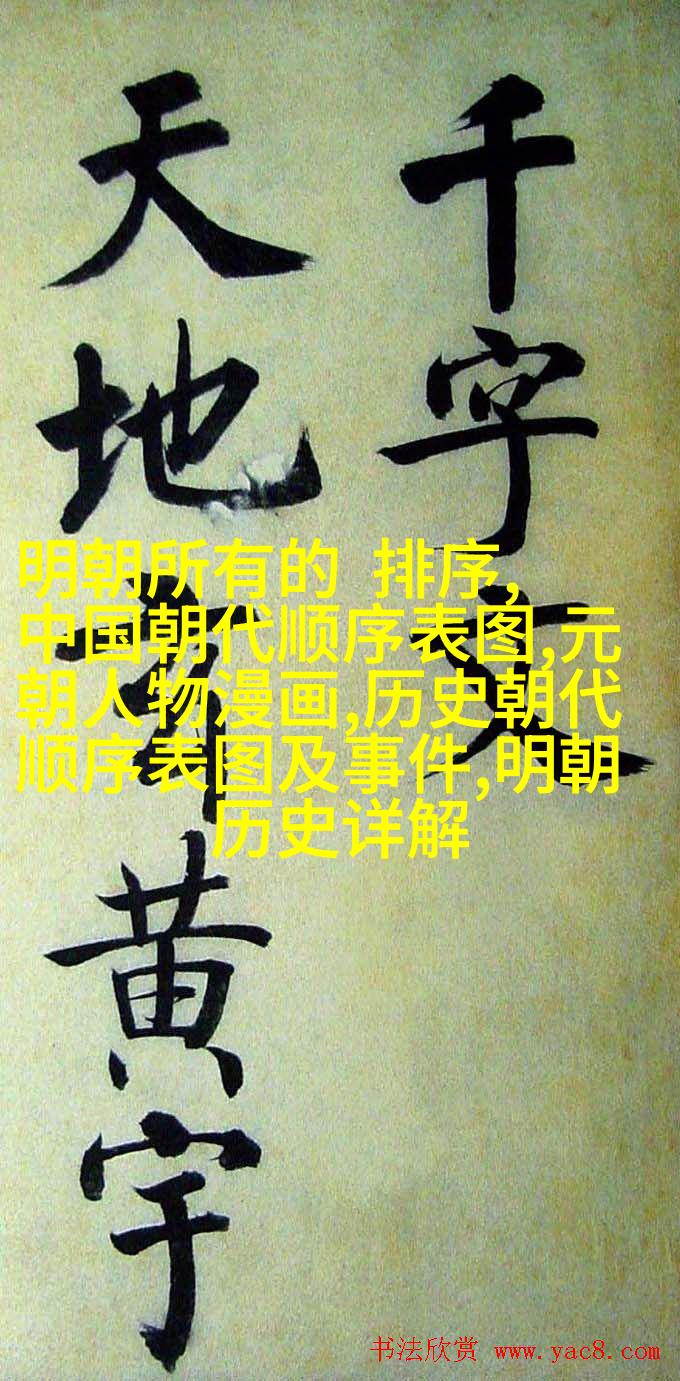 千字文
天地玄黄宇
明朝所有的 排序,
中国朝代顺序表图,元
朝人物漫画,历史朝代
顺序表图及事件,明朝
历史详解
书法欣赏 www.yac8.com